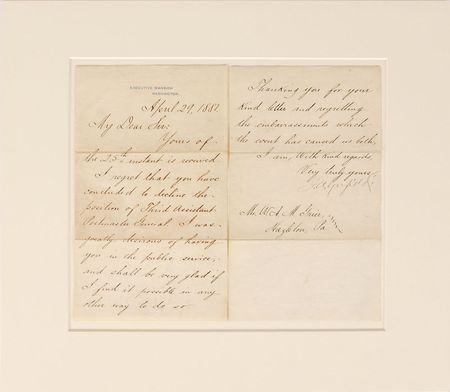 EXECUTIVE MANSION
WASHINGTON
April 29, 1881
My Dear Sir:
Yours of
the 25th instant is received
I regret that you have
concluded to decline the
position of Third Assistant
Postmaster General. I was
greatly desirous of having
you in the public service,
and shall be very glad if
I find it possible in any
other way to do so
Thanking you for your
kind letter and regretting
the embarrassments which
the event has caused us both,
I am, with kind regards,
Very truly yours
J A Garfield
Mr. W. A. M. Grier
Hazleton, Pa